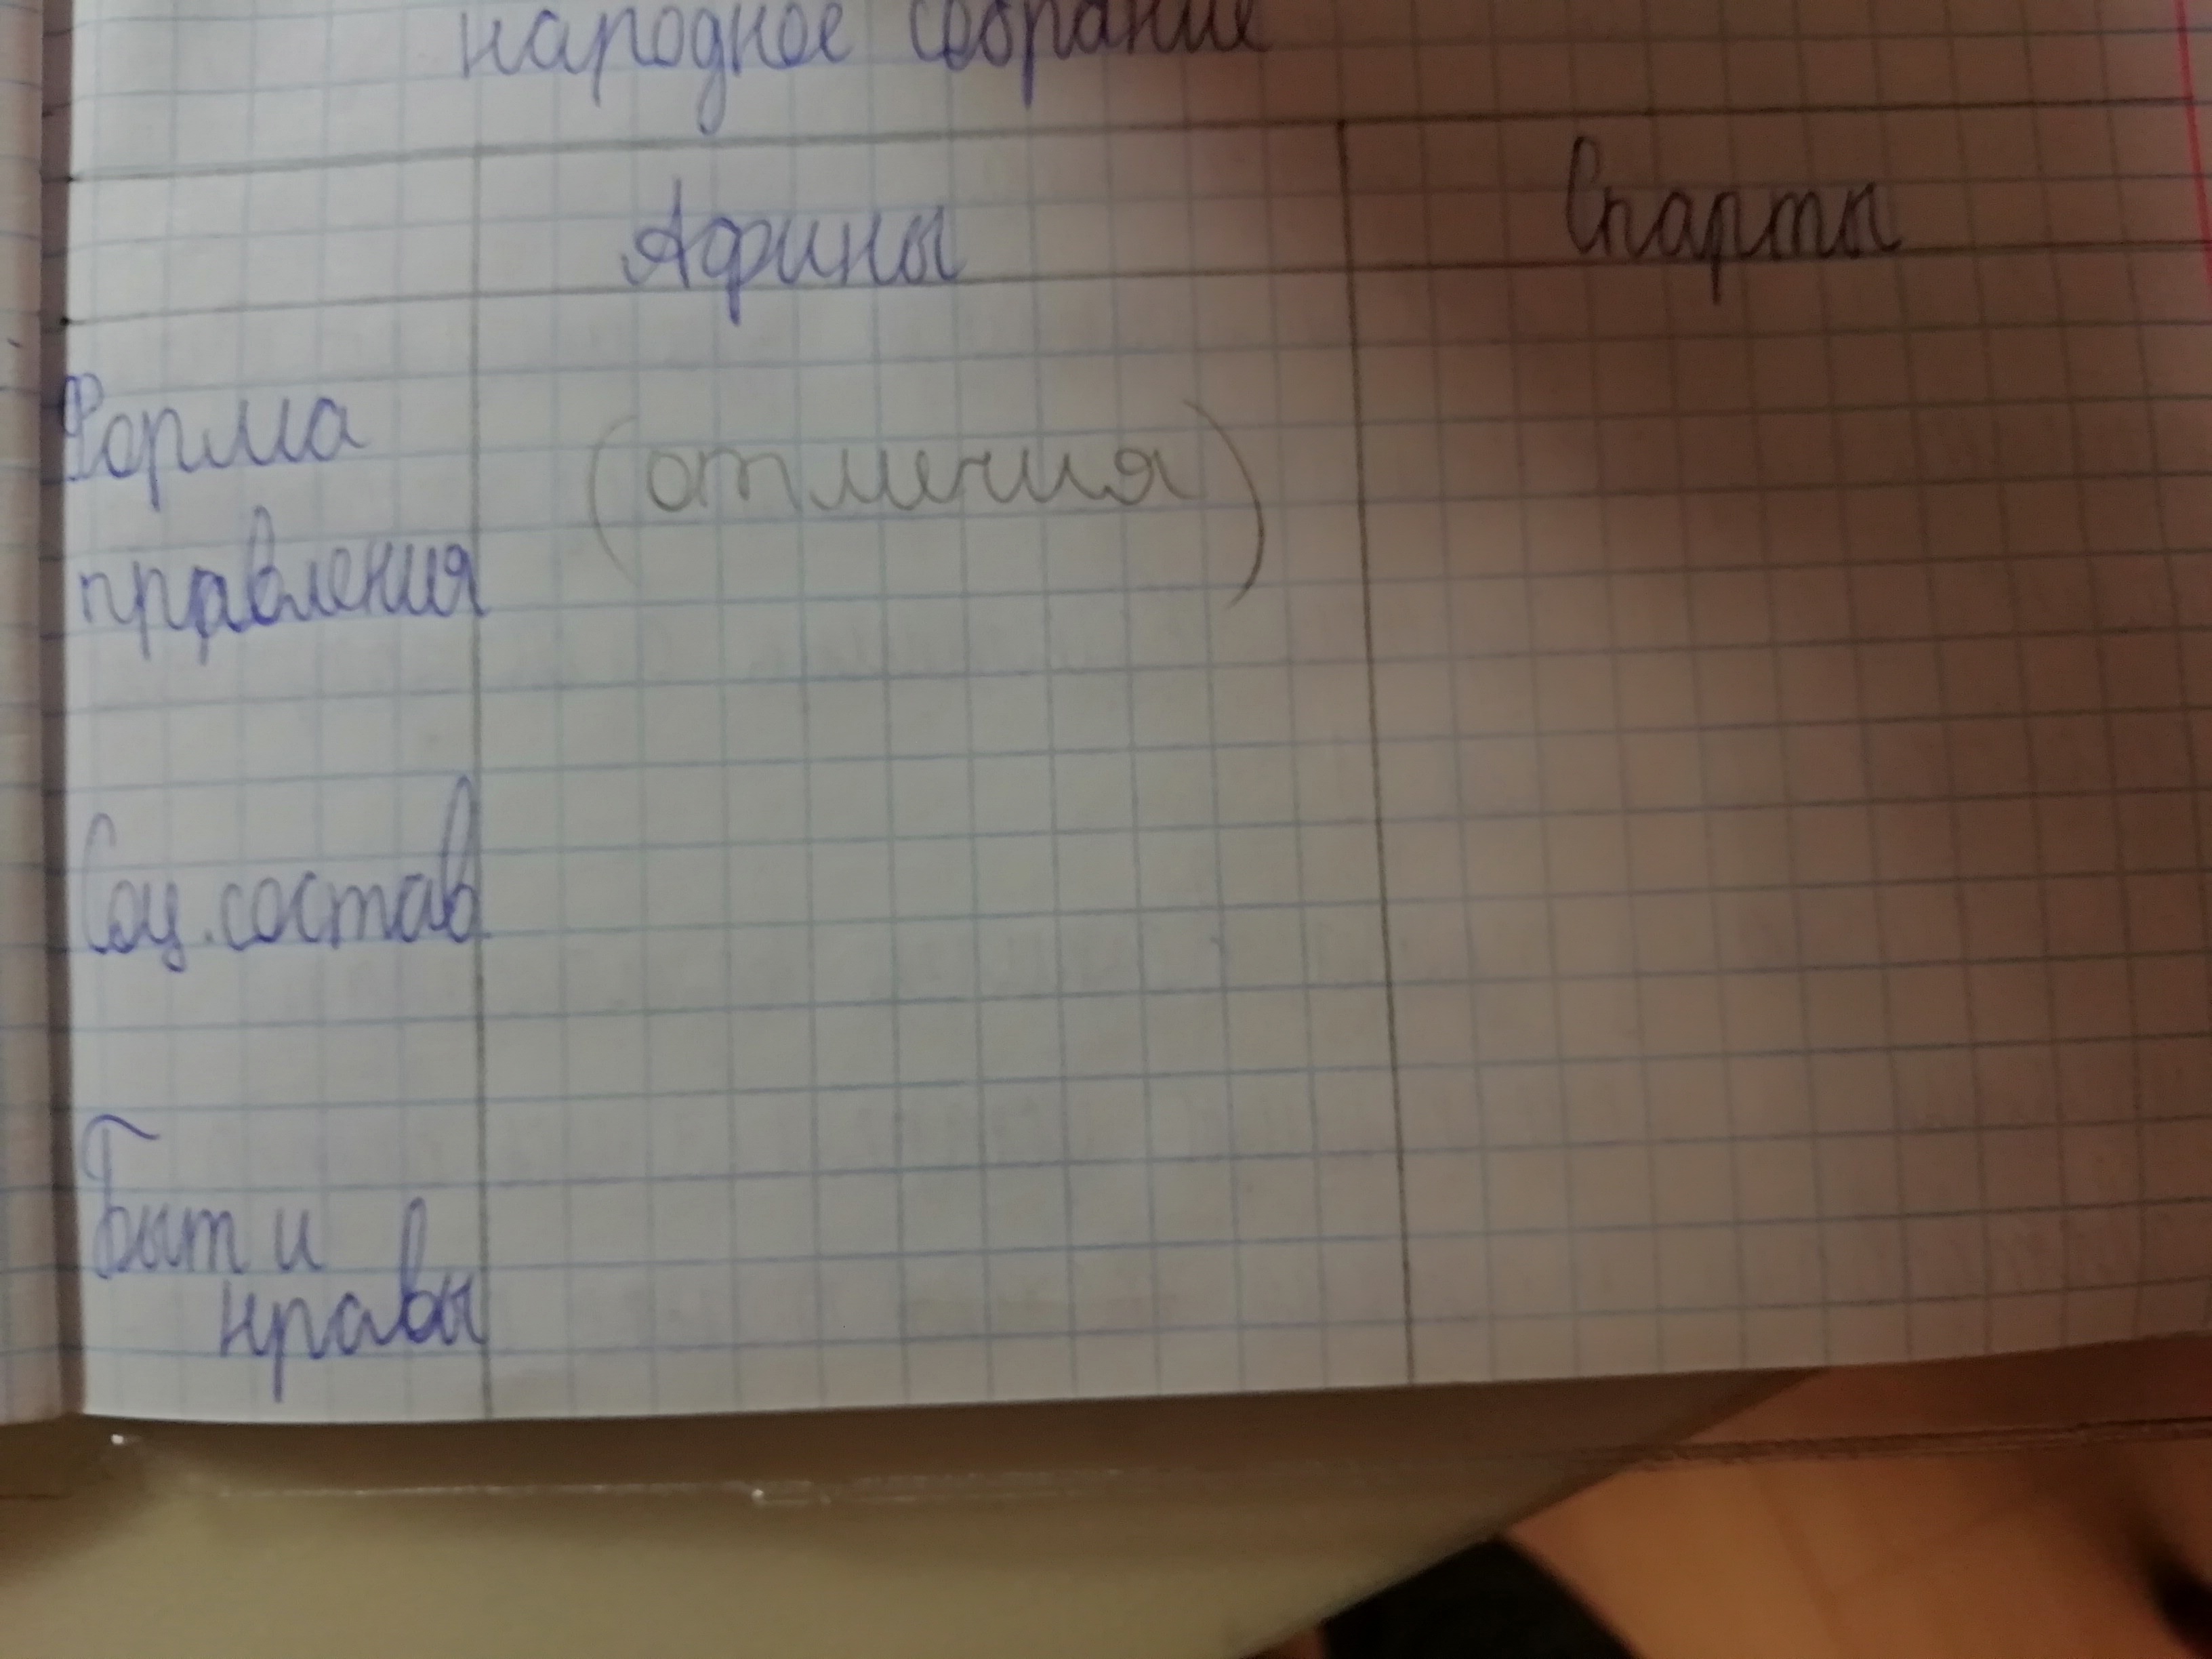 народное собрание
Афины Спарты
Форма
(отличия)
правления
Соц. состав
Быт и
нравы